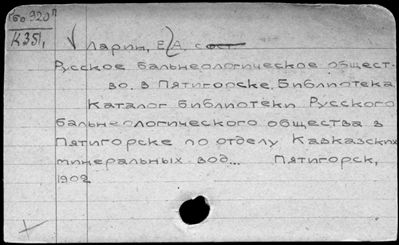 К351,
Ларин, Е.А. сост
Русское бальнеологическое общест-
во. в Пятигорске. Библиотека
Каталог библиотеки Русского
бальнеологического общества в
Пятигорске по отделу Кавказских
минеральных вод... Пятигорск,
1902